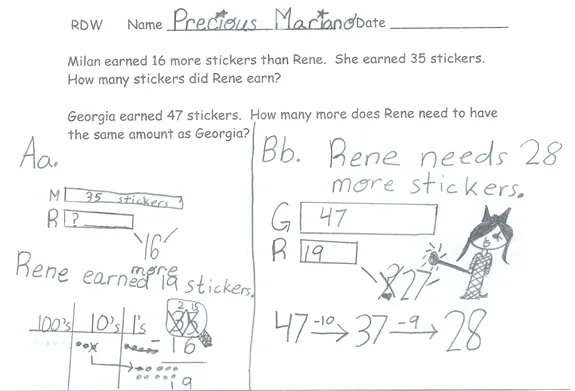 RDW Name Precious Mariano Date
Milan earned 16 more stickers than Rene. She earned 35 stickers.
How many stickers did Rene earn?
Georgia earned 47 stickers. How many more does Rene need to have
the same amount as Georgia?
Aa.
M 35 stickers
R ?
16
more
Rene earned 19 stickers.
100's 10's 1's
2 15
35
16
19
Bb. Rene needs 28
more stickers.
G 47
R 19
27
47 -10 → 37 -9 → 28